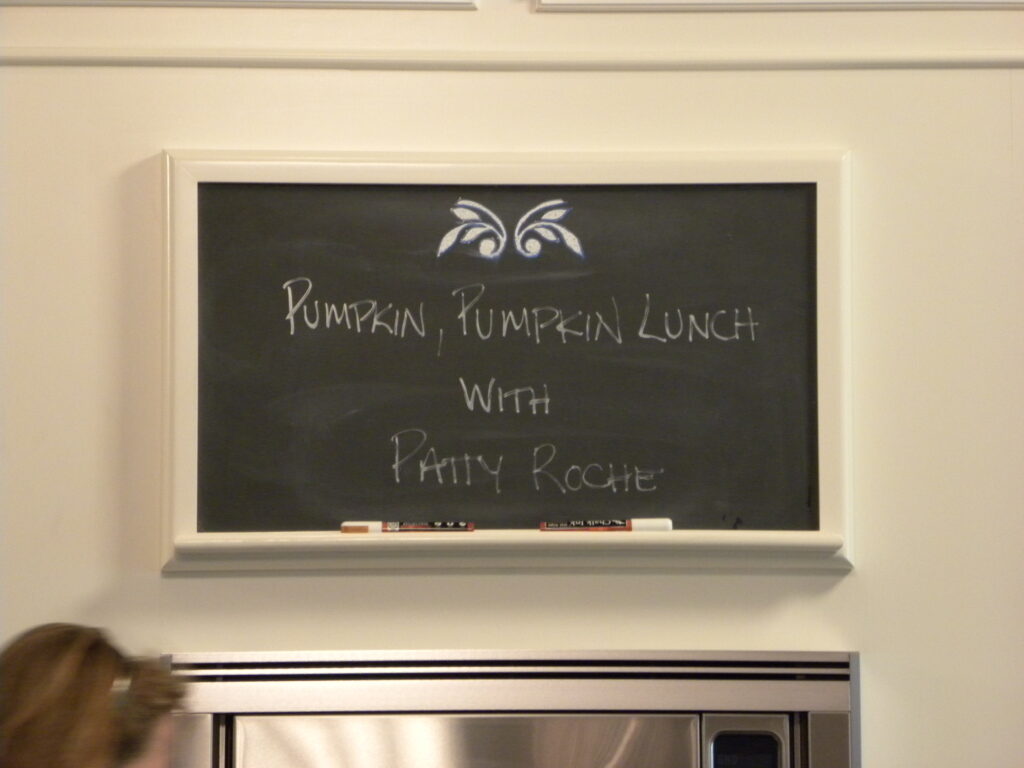 PUMPKIN, PUMPKIN LUNCH
WITH
PATTY ROCHE
Chalk Ink